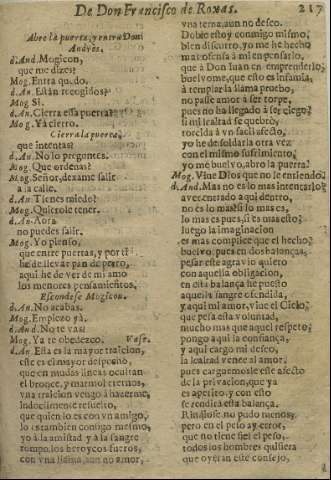 De Don Francisco de Roxas. 217
Abre la puerta, y entra Don
Andrès.
d.And. Mogicon,
que me dizes?
Mog. Entra quedo.
d.An. Estàn recogidos?
Mog. Si.
d.An. Cierra essa puerta?
Mog. Ya cierro.
Cierra la puerta.
que intentas?
d.An. No lo preguntes.
Mog. Que ordenas?
Mog. Señor, dexame salir
a la calle.
d.An. Tienes miedo?
Mog. Quierole tener.
d.An. Aora
no puedes salir.
Mog. Yo pienso,
que entre puertas, y por ti
he de llevar pan de perro,
aqui he de ver de mi amo
los menores pensamientos.
Escondese Mogicon.
d.An. No acabas.
Mog. Empiezo yà.
d.And. No te vas?
Mog. Ya te obedezco. Vase.
d.An. Esta es la mayor traicion,
este es el mayor despecho,
que en mudas lineas ocultan
el bronce, y marmol eternos,
vna traicion vengo à hazerme,
indocilmente resuelto,
que quien lo es con vn amigo,
lo es tambien contigo mesmo,
yo à la amistad y à la sangre
rompo los heroycos fueros,
con vna llama, aun no amor,
vna tema, aun no deseo.
Doble estoy conmigo mismo,
bien discurro, yo me he hecho
mas ofensa à mi en pensarlo,
que à Don Juan en emprenderlo,
buelvome, que esto es infamia,
à templar la llama pruebo,
no passe amor à ser torpe,
pues no ha llegado à ser ciego?
si mi lealtad se quebrò,
torcida à vn facil afecto,
yo he de soldarla otra vez
con el mismo sufrimiento,
yo me buelvo, abro la puerta.
Mog. Vive Dios que no le entiendo.
d.And. Mas no es lo mas intentarlo?
aver entrado aqui dentro,
no es lo mas? si lo mas es,
lo mas es pues, si es mas esto?
luego la imaginacion
es mas complice que el hecho?
buelvo, pues en dos balanças,
pesar este agravio quiero
con aquella obligacion,
en esta balança he puesto
aquella sangre ofendida,
y aqui mi amor, vive el Cielo,
que pesa esta voluntad,
mucho mas que aquel respeto;
pongo aqui la confiança,
y aqui cargo mi deseo,
la lealtad vence al amor,
pues carguemosle este afecto
de la privacion, que ya
es apetito, y con esto
se rendirà esta balança.
Rindiose, no pudo menos,
pero en el peso ay error,
que no tiene fiel el peso,
todos los hombres quisiera
que oyeran este consejo,